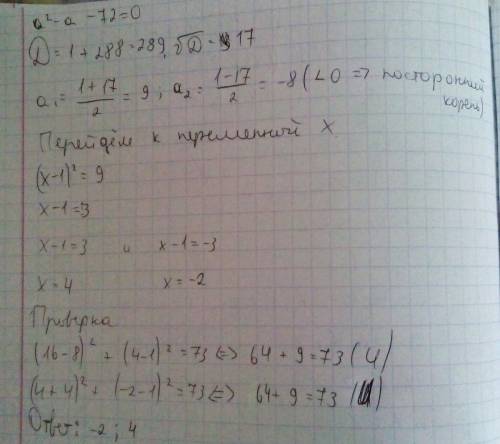 a² - a - 72 = 0
D = 1 + 288 = 289, √D = 17
a₁ = (1+17)/2 = 9 ; a₂ = (1-17)/2 = -8 (< 0 => посторонний корень)
Перейдём к переменной X
(x-1)² = 9
x-1=3
x-1=3 и x-1=-3
x=4 x=-2
Проверка
(16-8)² + (4-1)² = 73 <=> 64 + 9 = 73 (И)
(4+4)² + (-2-1)² = 73 <=> 64 + 9 = 73 (И)
Ответ: -2 ; 4